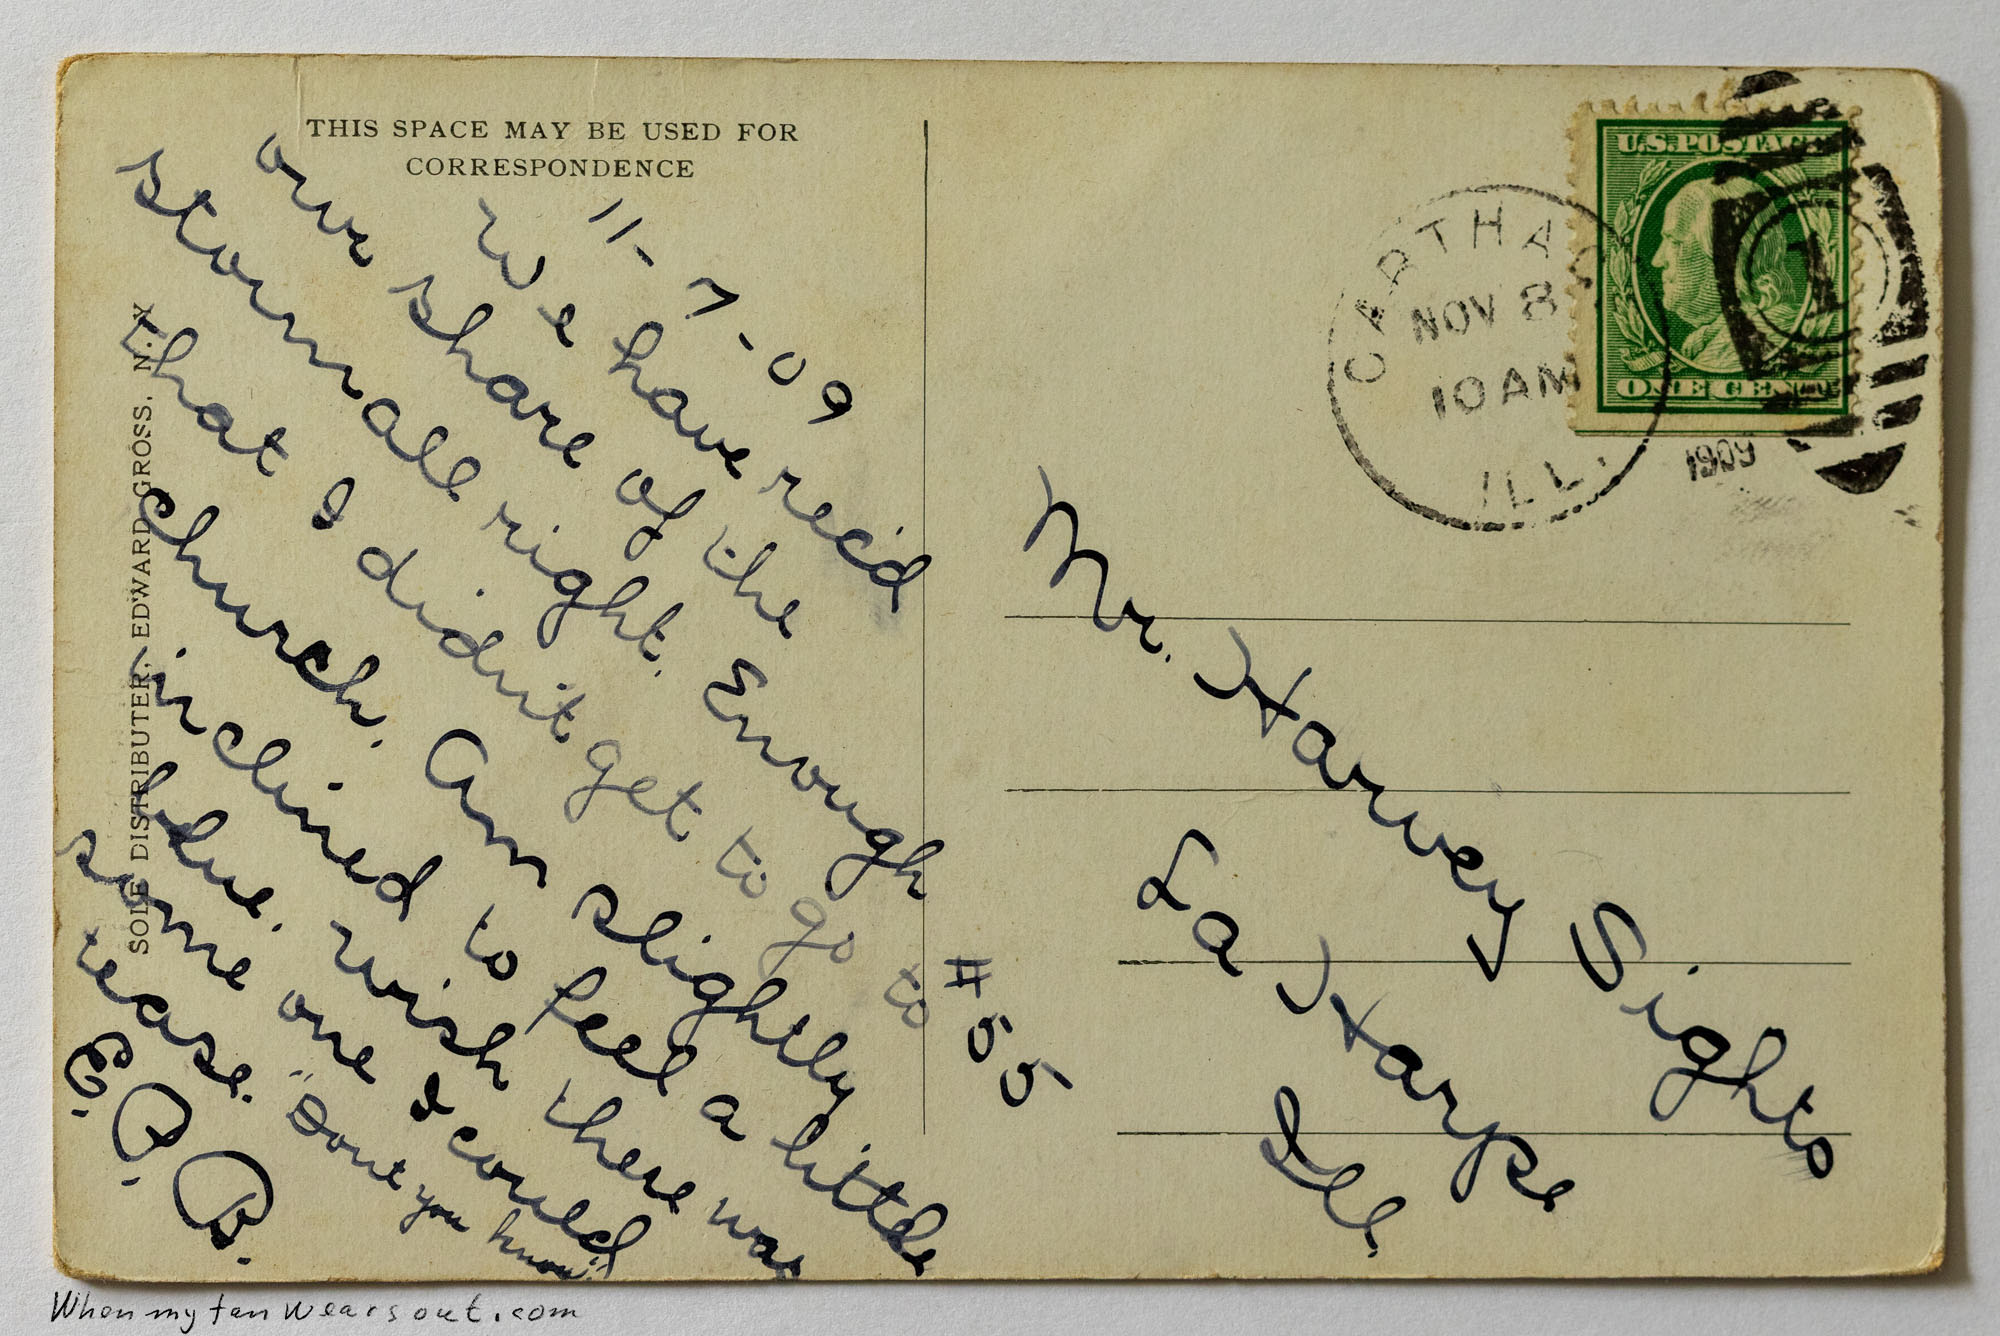 THIS SPACE MAY BE USED FOR
CORRESPONDENCE
11-7-09
We have rec'd
our share of the
storm all right. Enough
that I didn't get to go to
church. Am slightly
inclined to feel a little
blue. wish there was
some one I could
tease. "Dont you know"
E. P. B.
SOLE DISTRIBUTER, EDWARD GROSS, N. Y.
U.S. POSTAGE
ONE CENT
CARTHAG
NOV 8
10 AM
ILL.
1909
1
Mr. Harvey Sights
La Harpe
Ill.
#55
Whenmytanwearsout.com